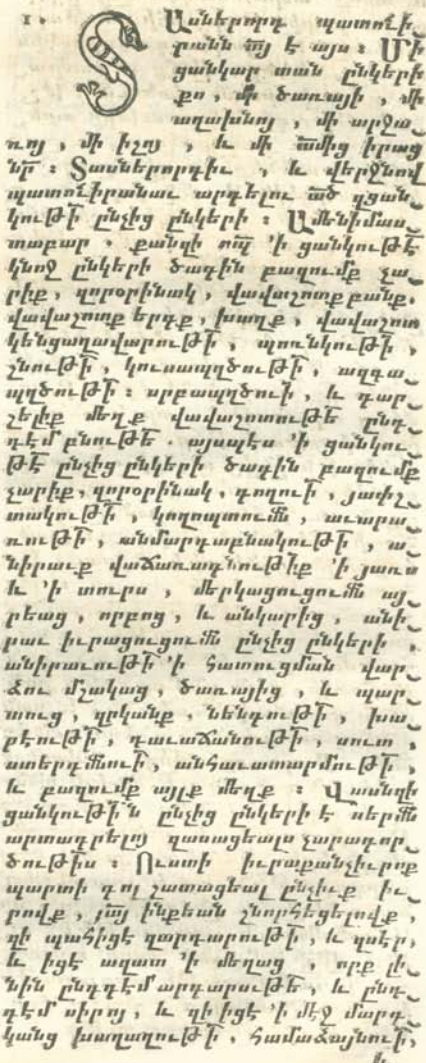 1. Տ Ասներորդ պատուէի֊
րանն տյ է այս ։ Մի
ցանկար տան ընկերի
քո , մի ծառայի , մի
աղախնոյ , մի արջա֊
ռոյ , մի իշոյ , և մի
նր ։ Տասներորդիւ , և վերջնով
պատուիրանաւ արդելու ած զցան֊
կութի ընչից ընկերի ։ Ամենիմաս֊
տաբար . քանզի 'ի ցանկութէ
կնոջ ընկերի ծագին բազումք չա֊
րիք , զորօրինակ , վավաշոտք բանք.
վավաշոտք երդք , խաղք , վավաշոտ
կենցաղավարութի , պոռնկութի ,
շնութի , կուսապղծութի , ազգա֊
պղծութի ։ սրբապղծուի , և դար֊
շելիք մեղք վավաշոտութե ընդ֊
դէմ բնութե . այսպէս 'ի ցանկու֊
թէ ընչից ընկերի ծագին բազումք
չարիք , զորօրինակ , գողուի , յափշ֊
տակութի , կողոպտումն , աւարա֊
ռութի , անմարդաբնակութի , ա֊
նիրաւք վաճառադնութիք 'ի յառս
և 'ի տուրս , մերկացուցումն այ֊
րեաց , որբոց , և անկարից , անի֊
րաւ իւրացուցումն ընչից ընկերի ,
անիրաւութի 'ի հատուցման վար֊
ձու մշակաց , ծառայից , և պար֊
տուց , զրկանք , նենդութի , խա֊
բէութի , դաւաճանութի , սուտ
ստերդմնուի , անհաւատարմութի ,
և բազումք այլք մեղք ։ Վասնզի
ցանկութի՛ն ընչից ընկերի է սերմն
արտադրելոյ զասացեալս չարադոր֊
ծութիս ։ Ուստի իւրաքանչիւրոք
պարտի գոլ շատացեալ ընչիւք իւ֊
րովք , յայ ինքեան շնորհեցելովք ,
զի պահիցէ զարդարութի , և զսէր ,
և իցէ ազատ 'ի մեղաց , որք լի֊
նին ընդդէմ արդարութե , և ընդ֊
դէմ սիրոյ , և զի իցէ 'ի մէջ մարդ֊
կանց խաղաղութի , համաձայնուի ,